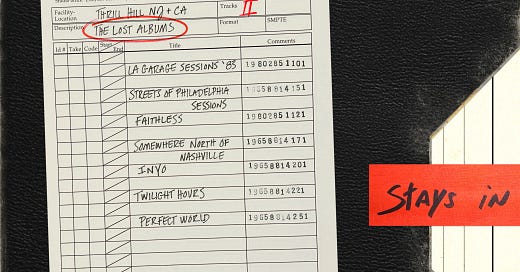 Facility-
Location THRILL HILL NJ + CA
Tracks II
Description THE LOST ALBUMS
Format SMPTE
Id # Take Code Start End Title Comments
LA GARAGE SESSIONS '83 19802851101
STREETS OF PHILADELPHIA SESSIONS 19658814151
FAITHLESS 19802851121
SOMEWHERE NORTH OF NASHVILLE 19658814171
INYO 19658814201
TWILIGHT HOURS 19658814221
PERFECT WORLD 19658814251
STAYS IN